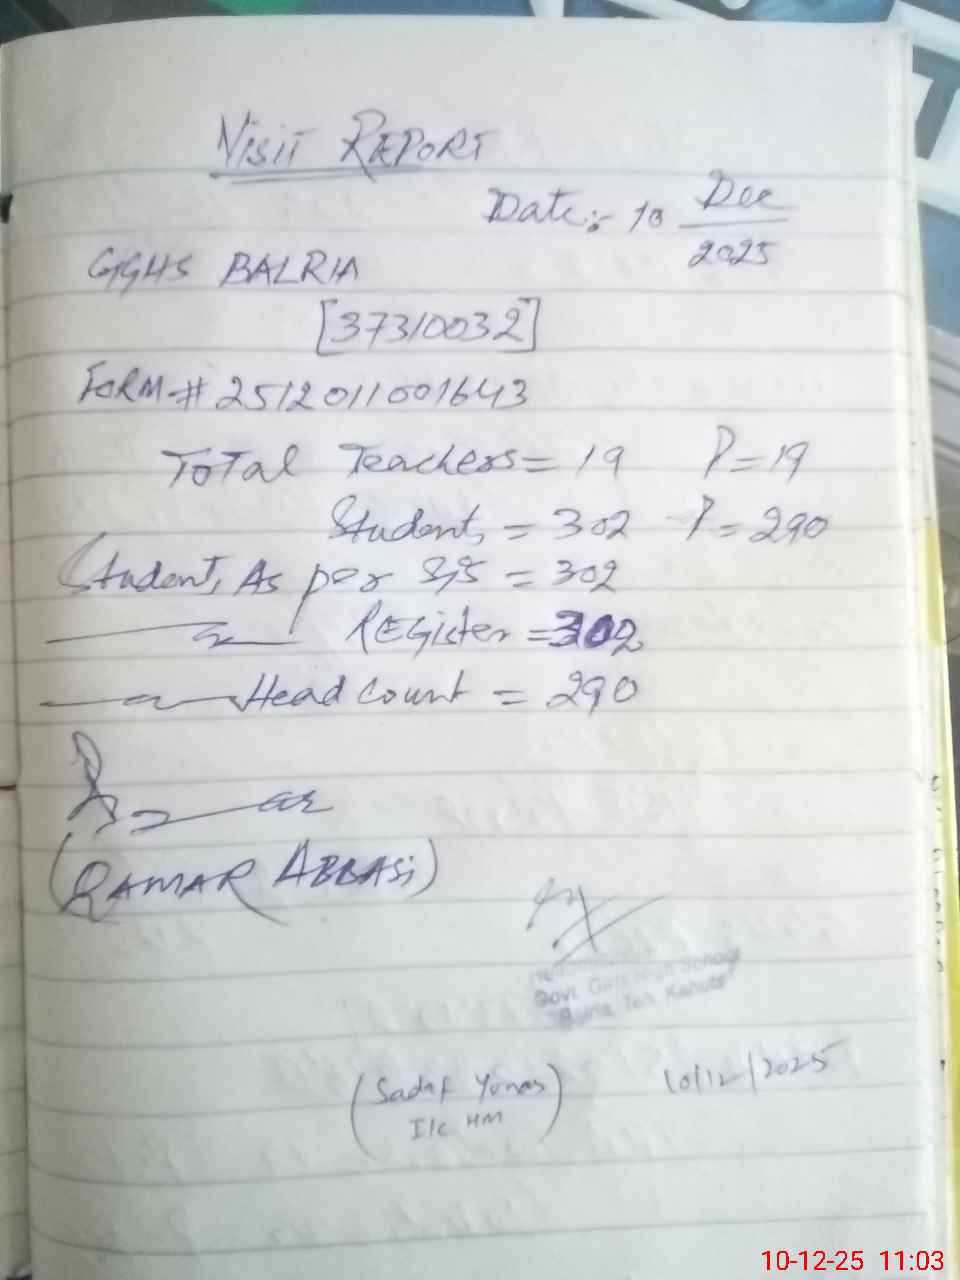 VISIT REPORT
Date:- 10 Dec
2025
GGHS BALRIA
[37310032]
FORM-# 2512011001643
Total Teachers = 19 P = 19
Students = 302 P = 290
Students As per SIS = 302
Register = 302
Head count = 290
(QAMAR ABBASi)
Govt. Girls High School
Teh Kahuta
(Sadaf Yunas) 10/12/2025
I/C HM
10-12-25 11:03